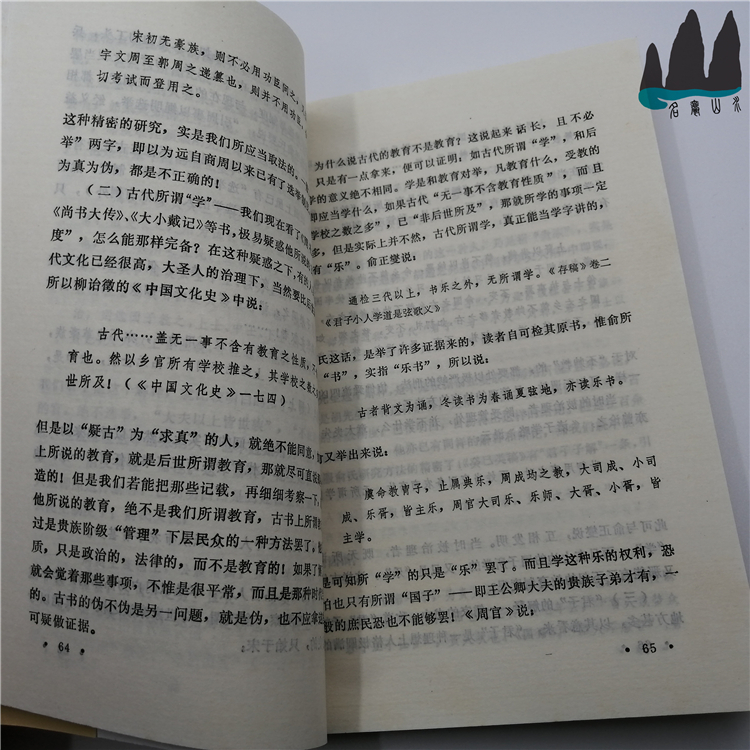 宋初无豪族，则不必用功臣阀之，
宇文周至郭周之递篡也，则并不用功臣，
切考试而登用之。
这种精密的研究，实是我们所应当取法的。
举”两字，即以为远自商周以来已有了选举
为真为伪，都是不正确的！
（二）古代所谓“学”——我们现在看了《周
《尚书大传》、《大小戴记》等书，极易疑惑他所说的
度”，怎么能那样完备？在这种疑惑之下，有的
代文化已经很高，大圣人的治理下，当然要比后
所以柳诒徵的《中国文化史》中说：
古代……盖无一事不含有教育之性质，
育也。然以乡官所有学校推之，其学校之数之
世所及！（《中国文化史》一七四）
但是以“疑古”为“求真”的人，就绝不能同意，
上所说的教育，就是后世所谓教育，那就尽可直
造的！但是我们若能把那些记载，再细细考察一下，
他所说的教育，绝不是我们所谓教育，古书上所谓教
过是贵族阶级“管理”下层民众的一种方法罢了，
质，只是政治的，法律的，而不是教育的！如果了解
就会觉着那些事项，不惟是很平常，而且是那种时
的。古书的伪不伪是另一问题，就是伪，也不应拿这
可疑做证据。
• 64 •
为什么说古代的教育不是教育？这说起来话长，且不必
只是有一点拿来，便可以证明，如古代所谓“学”，和后
学的意义绝不相同。学是和教育对举，凡教育什么，受教的
即应当学什么，如果古代“无一事不含教育性质”，而且
学校之数之多”，已“非后世所及”，那就所学的事项一定
多，但是实际上并不然，古代所谓学，真正能当学字讲的，
有“乐”。俞正燮说：
通检三代以上，书乐之外，无所谓学。《存稿》卷二
《君子小人学道是弦歌义》
氏这话，是举了许多证据来的，读者自可检其原书，惟俞所
“书”，实指“乐书”，所以说：
古者背文为诵，冬读书为春诵夏弦地，亦读乐书。
有又举出来说：
虞命教胄子，止属典乐，周成均之教，大司成、小司
成、乐胥，皆主乐，周官大司乐、乐师、大胥、小胥，皆
主学。
是可知所“学”的只是“乐”罢了。而且学这种乐的权利，恐
怕也只有所谓“国子”——即王公卿大夫的贵族子弟才有，一
般的庶民恐也不能够罢！《周官》说，
• 65 •
名囊山水